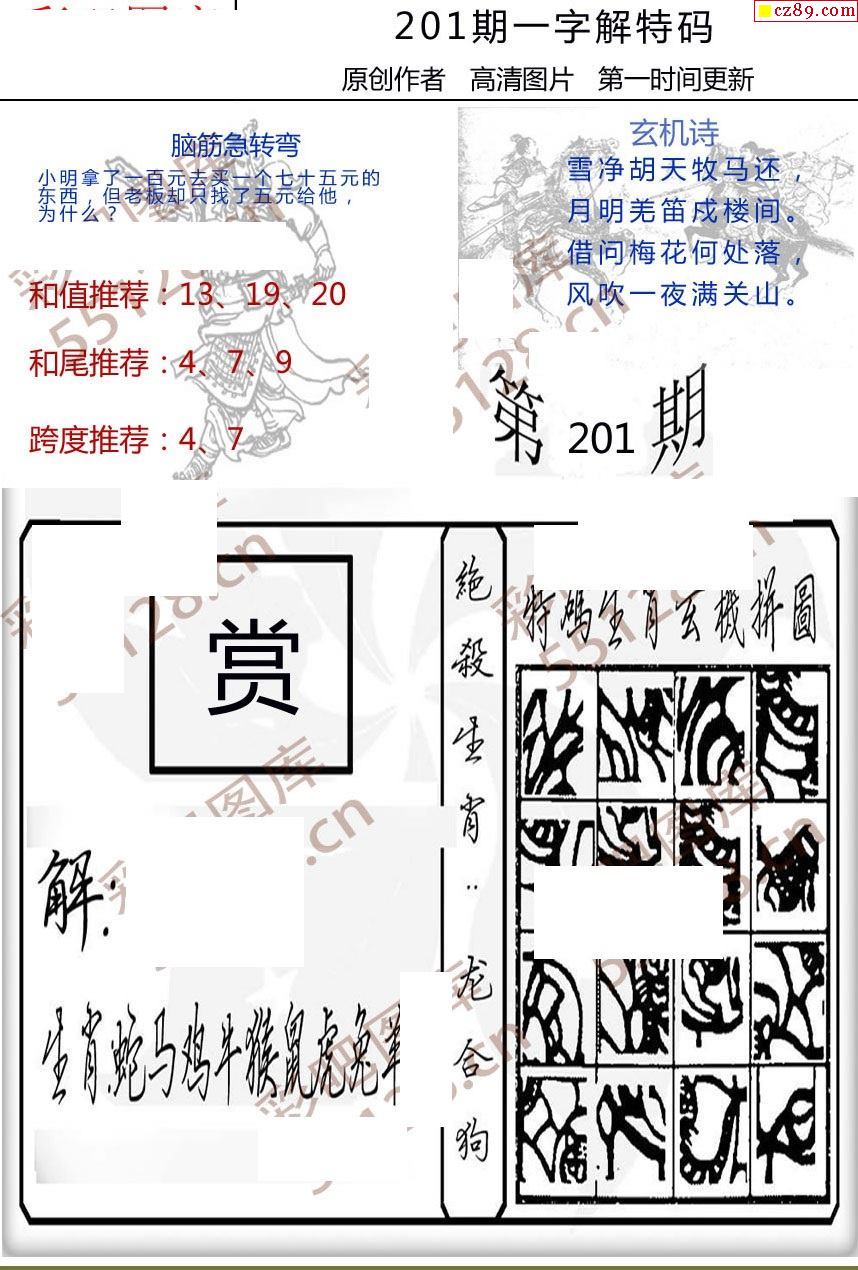 201期一字解特码
cz89.com
原创作者 高清图片 第一时间更新
脑筋急转弯
小明拿了一百元去买一个七十五元的
东西，但老板却只找了五元给他，
为什么？
和值推荐：13、19、20
和尾推荐：4、7、9
跨度推荐：4、7
玄机诗
雪净胡天牧马还，
月明羌笛戍楼间。
借问梅花何处落，
风吹一夜满关山。
第 201 期
赏
解：
生肖蛇马鸡牛猴鼠虎兔羊
絶殺生肖：龙合狗
特碼生肖玄機拼圖
55128.cn